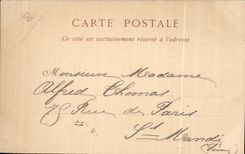 CARTE POSTALE
Ce côté est exclusivement réservé à l'adresse
Monsieur Madame
Alfred Thomas
75 Rue de Paris
St Mandé
(Seine)